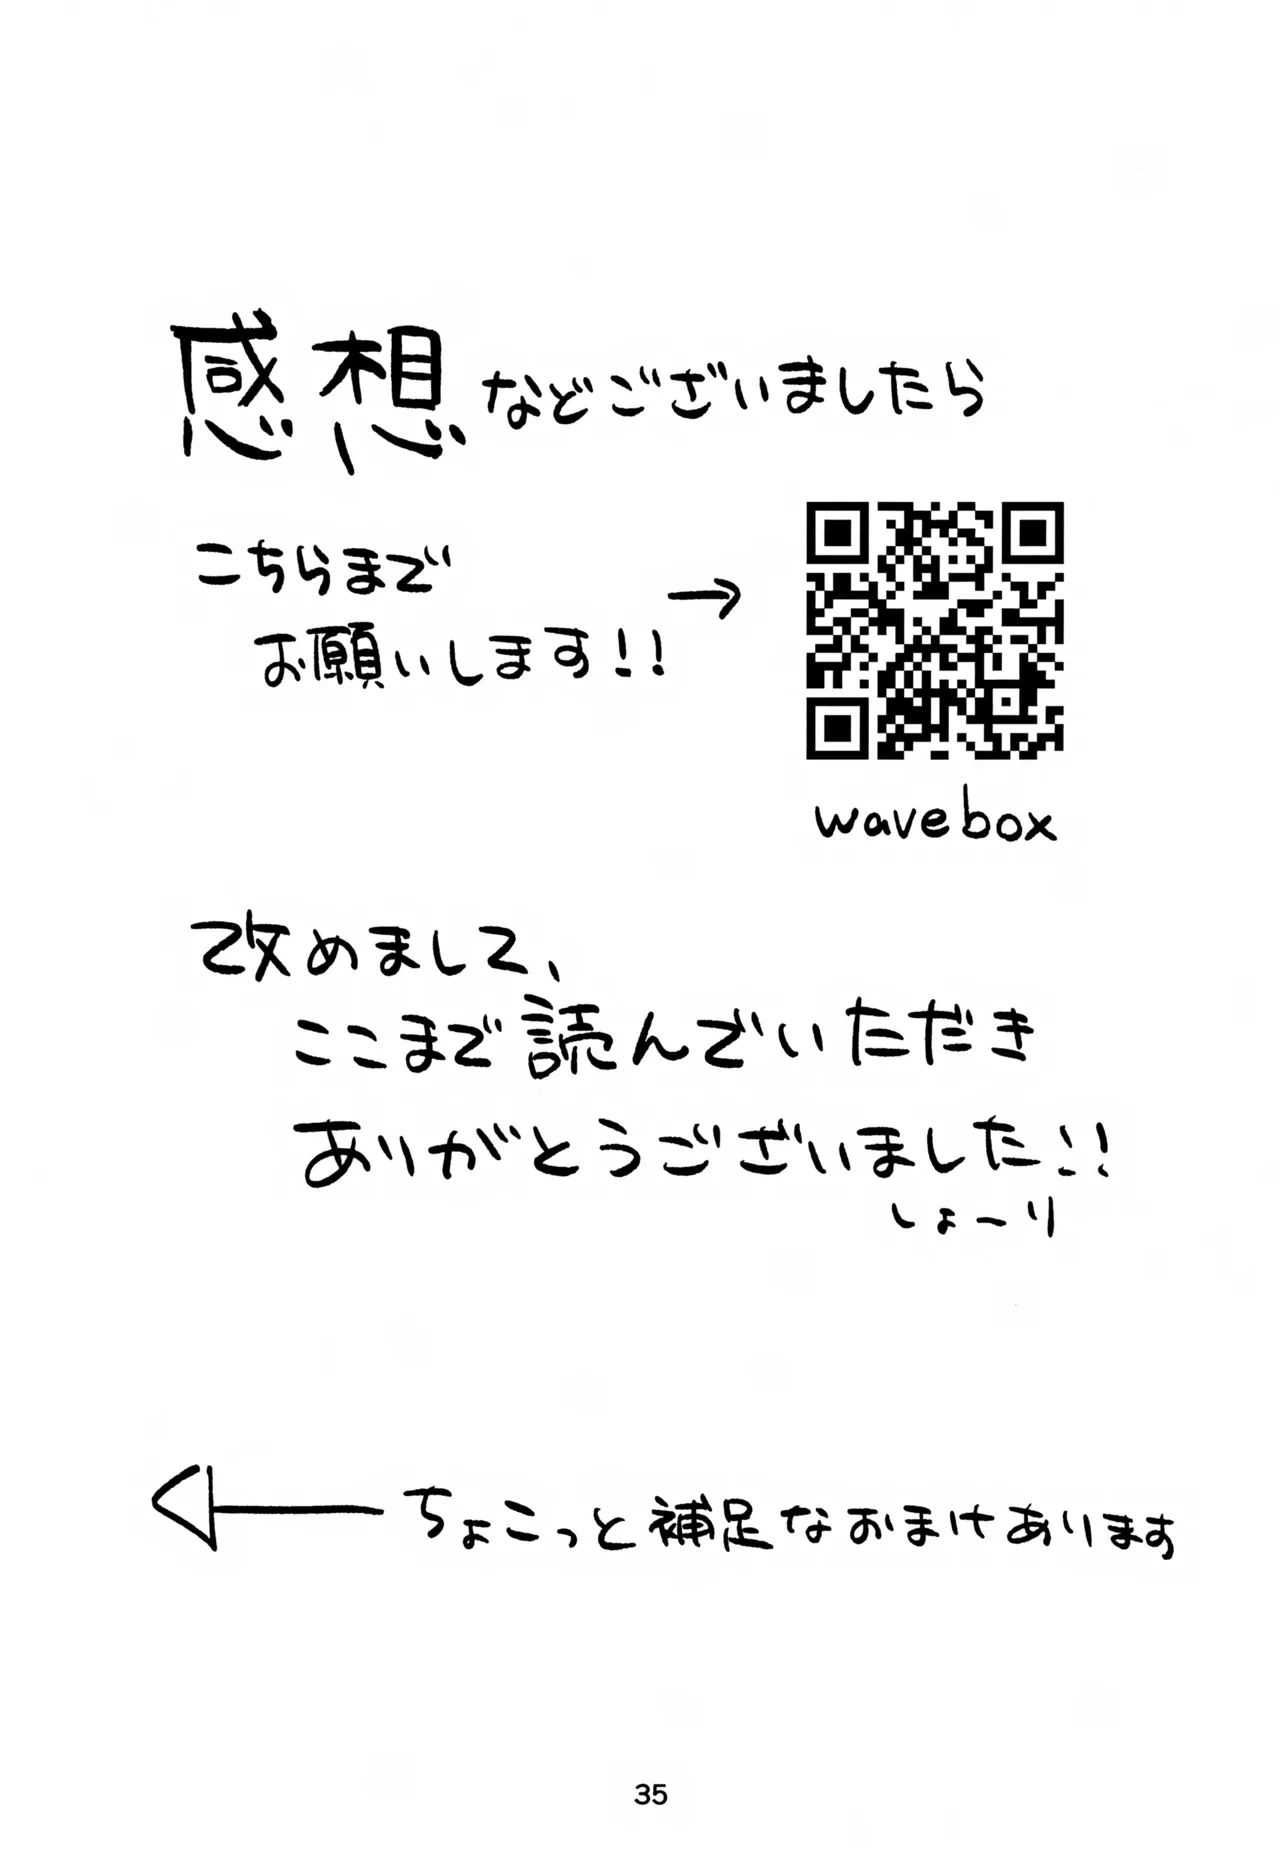 感想などございましたら
こちらまで
お願いします!!
→
wavebox
改めまして、
ここまで読んでいただき
ありがとうございました!!
しょーり
ちょこっと補足なおまけあります
35